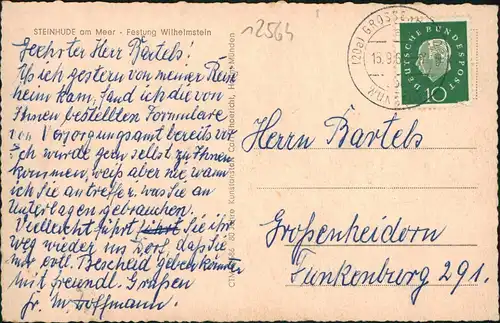 STEINHUDE am Meer - Festung Wilhelmstein
12564
Geehrter Herr Bartels!
Als ich gestern von meiner Reise
heim kam, fand ich die von
Ihnen bestellten Formulare
von Versorgungsamt bereits vor.
Ich würde gern selbst zu Ihnen
kommen, weiß aber nie wann
ich Sie antreffe. was Sie an
Unterlagen gebrauchen.
Vielleicht führt führt Sie ihr
weg wieder ins Dorf, daß Sie
mir evtl. Bescheid geben könnten
Mit freundl. Grüßen
Fr. M. Hoffmann.
Kunstanstalt
Hann. Münden
(20a) GROSSEN
DEUTSCHE BUNDESPOST
10
Herrn Bartels
Großenheidorn
Funkenburg 291.